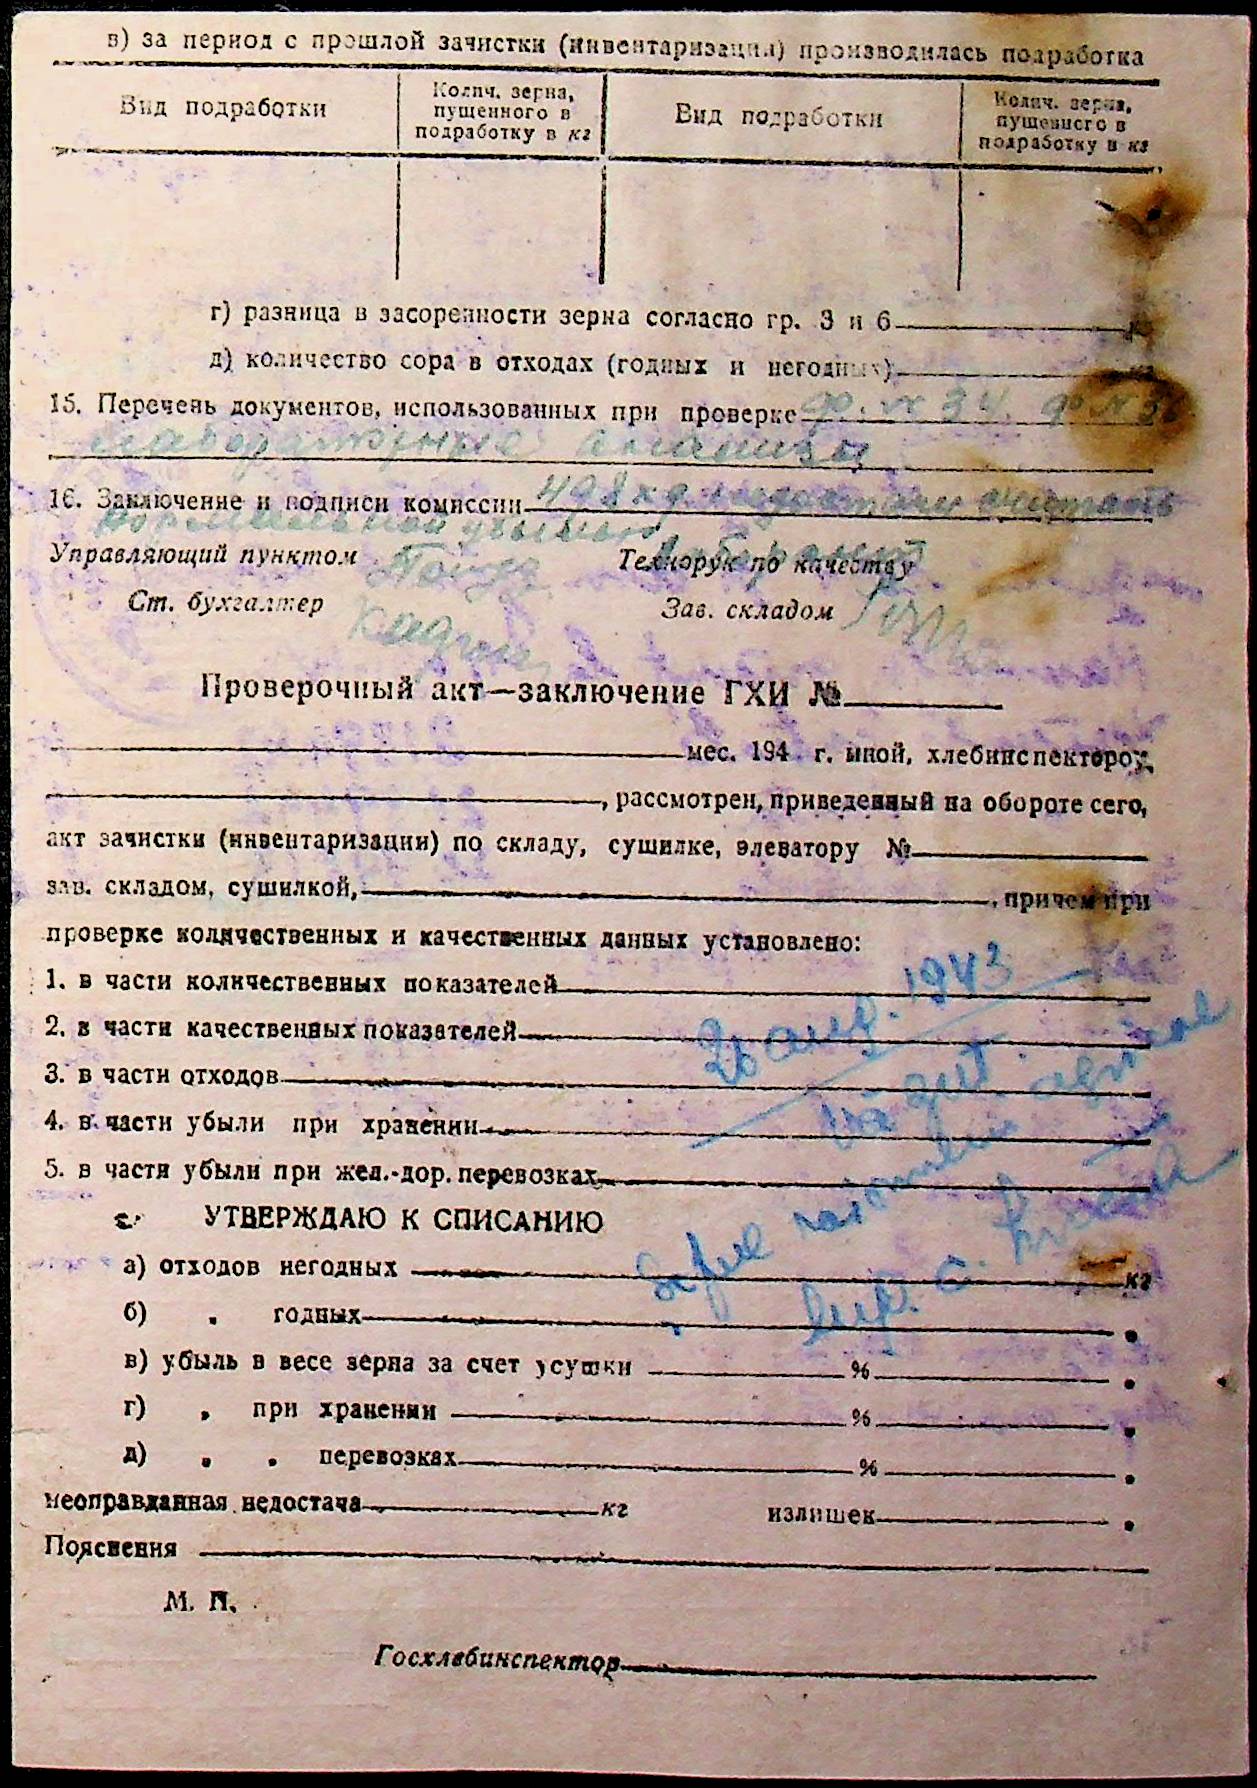 в) за период с прошлой зачистки (инвентаризации) производилась подработка
Вид подработки
Колич. зерна, пущенного в подработку в кг
Вид подработки
Колич. зерна, пущенного в подработку в кг
г) разница в засоренности зерна согласно гр. 3 и 6 кг
д) количество сора в отходах (годных и негодных) кг
15. Перечень документов, использованных при проверке ф. № 34. ф №
лабораторные анализы
16. Заключение и подписи комиссии 498 кг недостачи считать
нормальной убылью
Управляющий пунктом Технорук по качеству
Ст. бухгалтер Зав. складом
Проверочный акт—заключение ГХИ №
мес. 194 г. мной, хлебинспектором
, рассмотрен, приведенный на обороте сего,
акт зачистки (инвентаризации) по складу, сушилке, элеватору №
зав. складом, сушилкой, , причем при
проверке количественных и качественных данных установлено:
1. в части количественных показателей
26 aug. 1943
2. в части качественных показателей
3. в части отходов
4. в части убыли при хранении
5. в части убыли при жел.-дор. перевозках
УТВЕРЖДАЮ К СПИСАНИЮ
а) отходов негодных кг
б) „ годных „
в) убыль в весе зерна за счет усушки % „
г) „ при хранении % „
д) „ „ перевозках % „
неоправданная недостача кг излишек „
Пояснения
М. П.
Госхлебинспектор